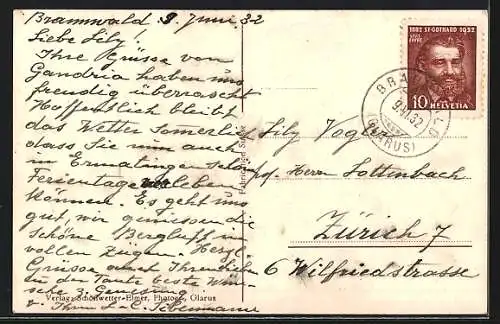 Braunwald 9. Juni 32
Liebe Lily!
Ihre Grüsse von
Gandria haben uns
freudig überrascht
Hoffentlich bleibt
das Wetter sommerlich
dass Sie nun auch
in Ermatingen schöne
Ferientage verleben
können. Es geht uns
gut, wir geniessen die
schöne Bergluft in
vollen Zügen. Herzl.
Grüsse auch Ihren lieben
u. der Tante beste Wün-
sche z. Genesung
Verlag: Schönwetter-Elmer, Photogr., Glarus
1882 ST. GOTTHARD 1932
10 HELVETIA
BRAUNWALD
9.VI.32
(GLARUS)
Lily Vogler
pr. Herrn Lottenbach
Zürich 7
6 Wilfriedstrasse